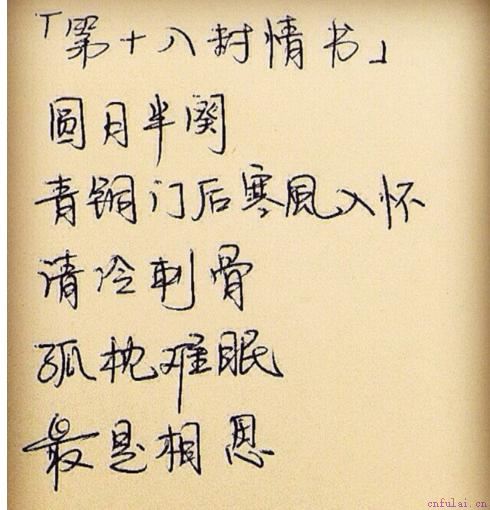 「第十八封情书」
圆月半阕
青铜门后寒風入怀
清冷刺骨
孤枕难眠
最是相思
cnfulai.cn